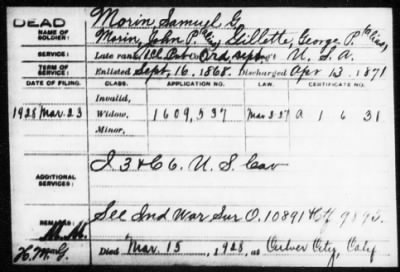 DEAD
Morin Samuel G.
NAME OF SOLDIER:
Morin, John P. alias Gillette, George P. (alias)
SERVICE:
Late rank, Pvt Ord. Dept U.S.A.
TERM OF SERVICE:
Enlisted Sept. 16. 1868. Discharged Apr 13. 1871
DATE OF FILING. CLASS. APPLICATION NO. LAW. CERTIFICATE NO.
Invalid,
1928 Mar. 23 Widow, 1609,537 Mar 3-27 a 1 6 31
Minor,
ADDITIONAL SERVICES:
I. 3 & C 6. U.S. Cav
REMARKS:
See Ind War Sur O. 10891 Ctf 9895.
M.M.
H.M.G.
Died Mar. 15, 1928, at Culver City, Calif